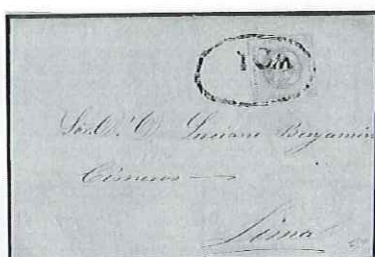 YCA
Sor. Dr. D. Luciano Benjamin
Cisneros —
Lima